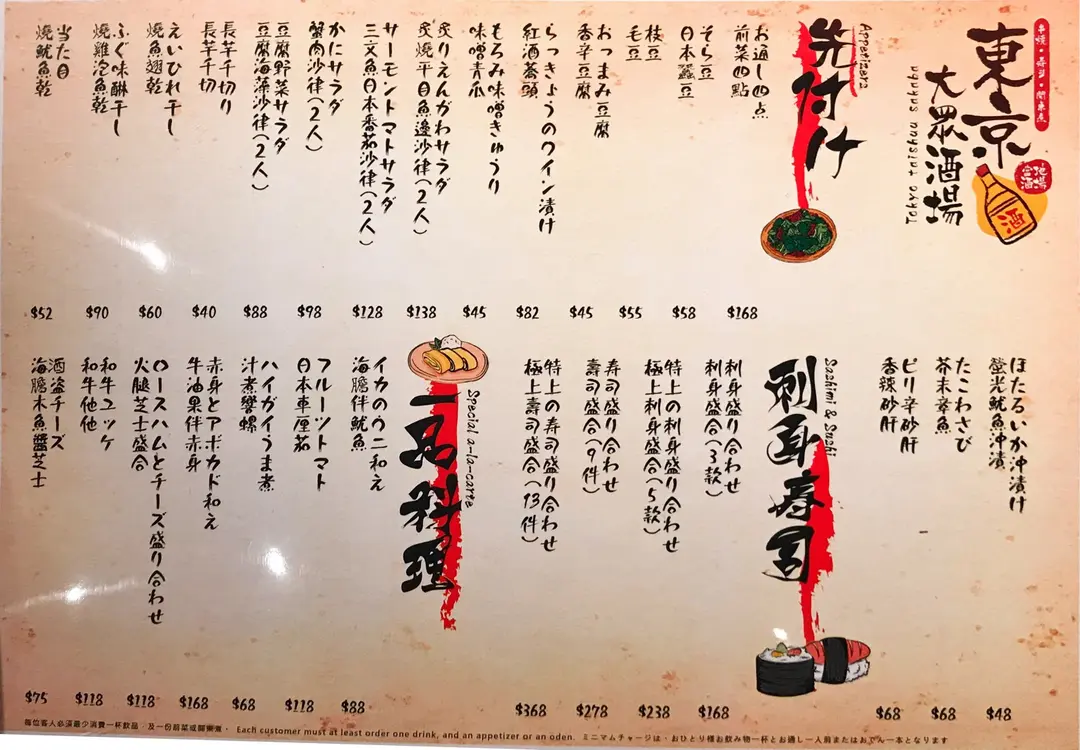 串燒・壽司・関東煮
東京
大眾酒場
Tokyo taishuu sakaba
地場
酒
先付け
Appetizers
お通し四点
前菜四點
$168
そら豆
日本蠶豆
$58
枝豆
毛豆
$55
おつまみ豆腐
香辛豆腐
$45
らっきょうのワイン漬け
紅酒蕎頭
$82
もろみ味噌きゅうり
味噌青瓜
$45
炙りえんがわサラダ
炙燒平目魚邊沙律(2人)
$138
サーモントマトサラダ
三文魚日本番茄沙律(2人)
$128
かにサラダ
蟹肉沙律(2人)
$98
豆腐野菜サラダ
豆腐海藻沙律(2人)
$88
長芋千切り
長芋千切
$40
えいひれ干し
燒魚翅乾
$60
ふぐ味醂干し
燒雞泡魚乾
$90
当たり目
燒魷魚乾
$52
ほたるいか沖漬け
螢光魷魚沖漬
$48
たこわさび
芥末章魚
$68
ピリ辛砂肝
香辣砂肝
$68
刺身寿司
Sashimi & Sushi
刺身盛り合わせ
刺身盛合(3款)
$168
特上の刺身盛り合わせ
極上刺身盛合(5款)
$238
寿司盛り合わせ
壽司盛合(9件)
$278
特上の寿司盛り合わせ
極上壽司盛合(13件)
$368
一品料理
Special a-la-carte
イカのウニ和え
海膽伴魷魚
$88
フルーツトマト
日本車厘茄
$118
ハイガイうま煮
汁煮響螺
$68
赤身とアボカド和え
牛油果伴赤身
$168
ロースハムとチーズ盛り合わせ
火腿芝士盛合
$118
和牛ユッケ
和牛他他
$118
酒盗チーズ
海膽木魚醬芝士
$75
每位客人必須最少消費一杯飲品,及一份前菜或關東煮。 Each customer must at least order one drink, and an appetizer or an oden. ミニマムチャージは、おひとり様お飲み物一杯とお通し一人前またはおでん一本となります